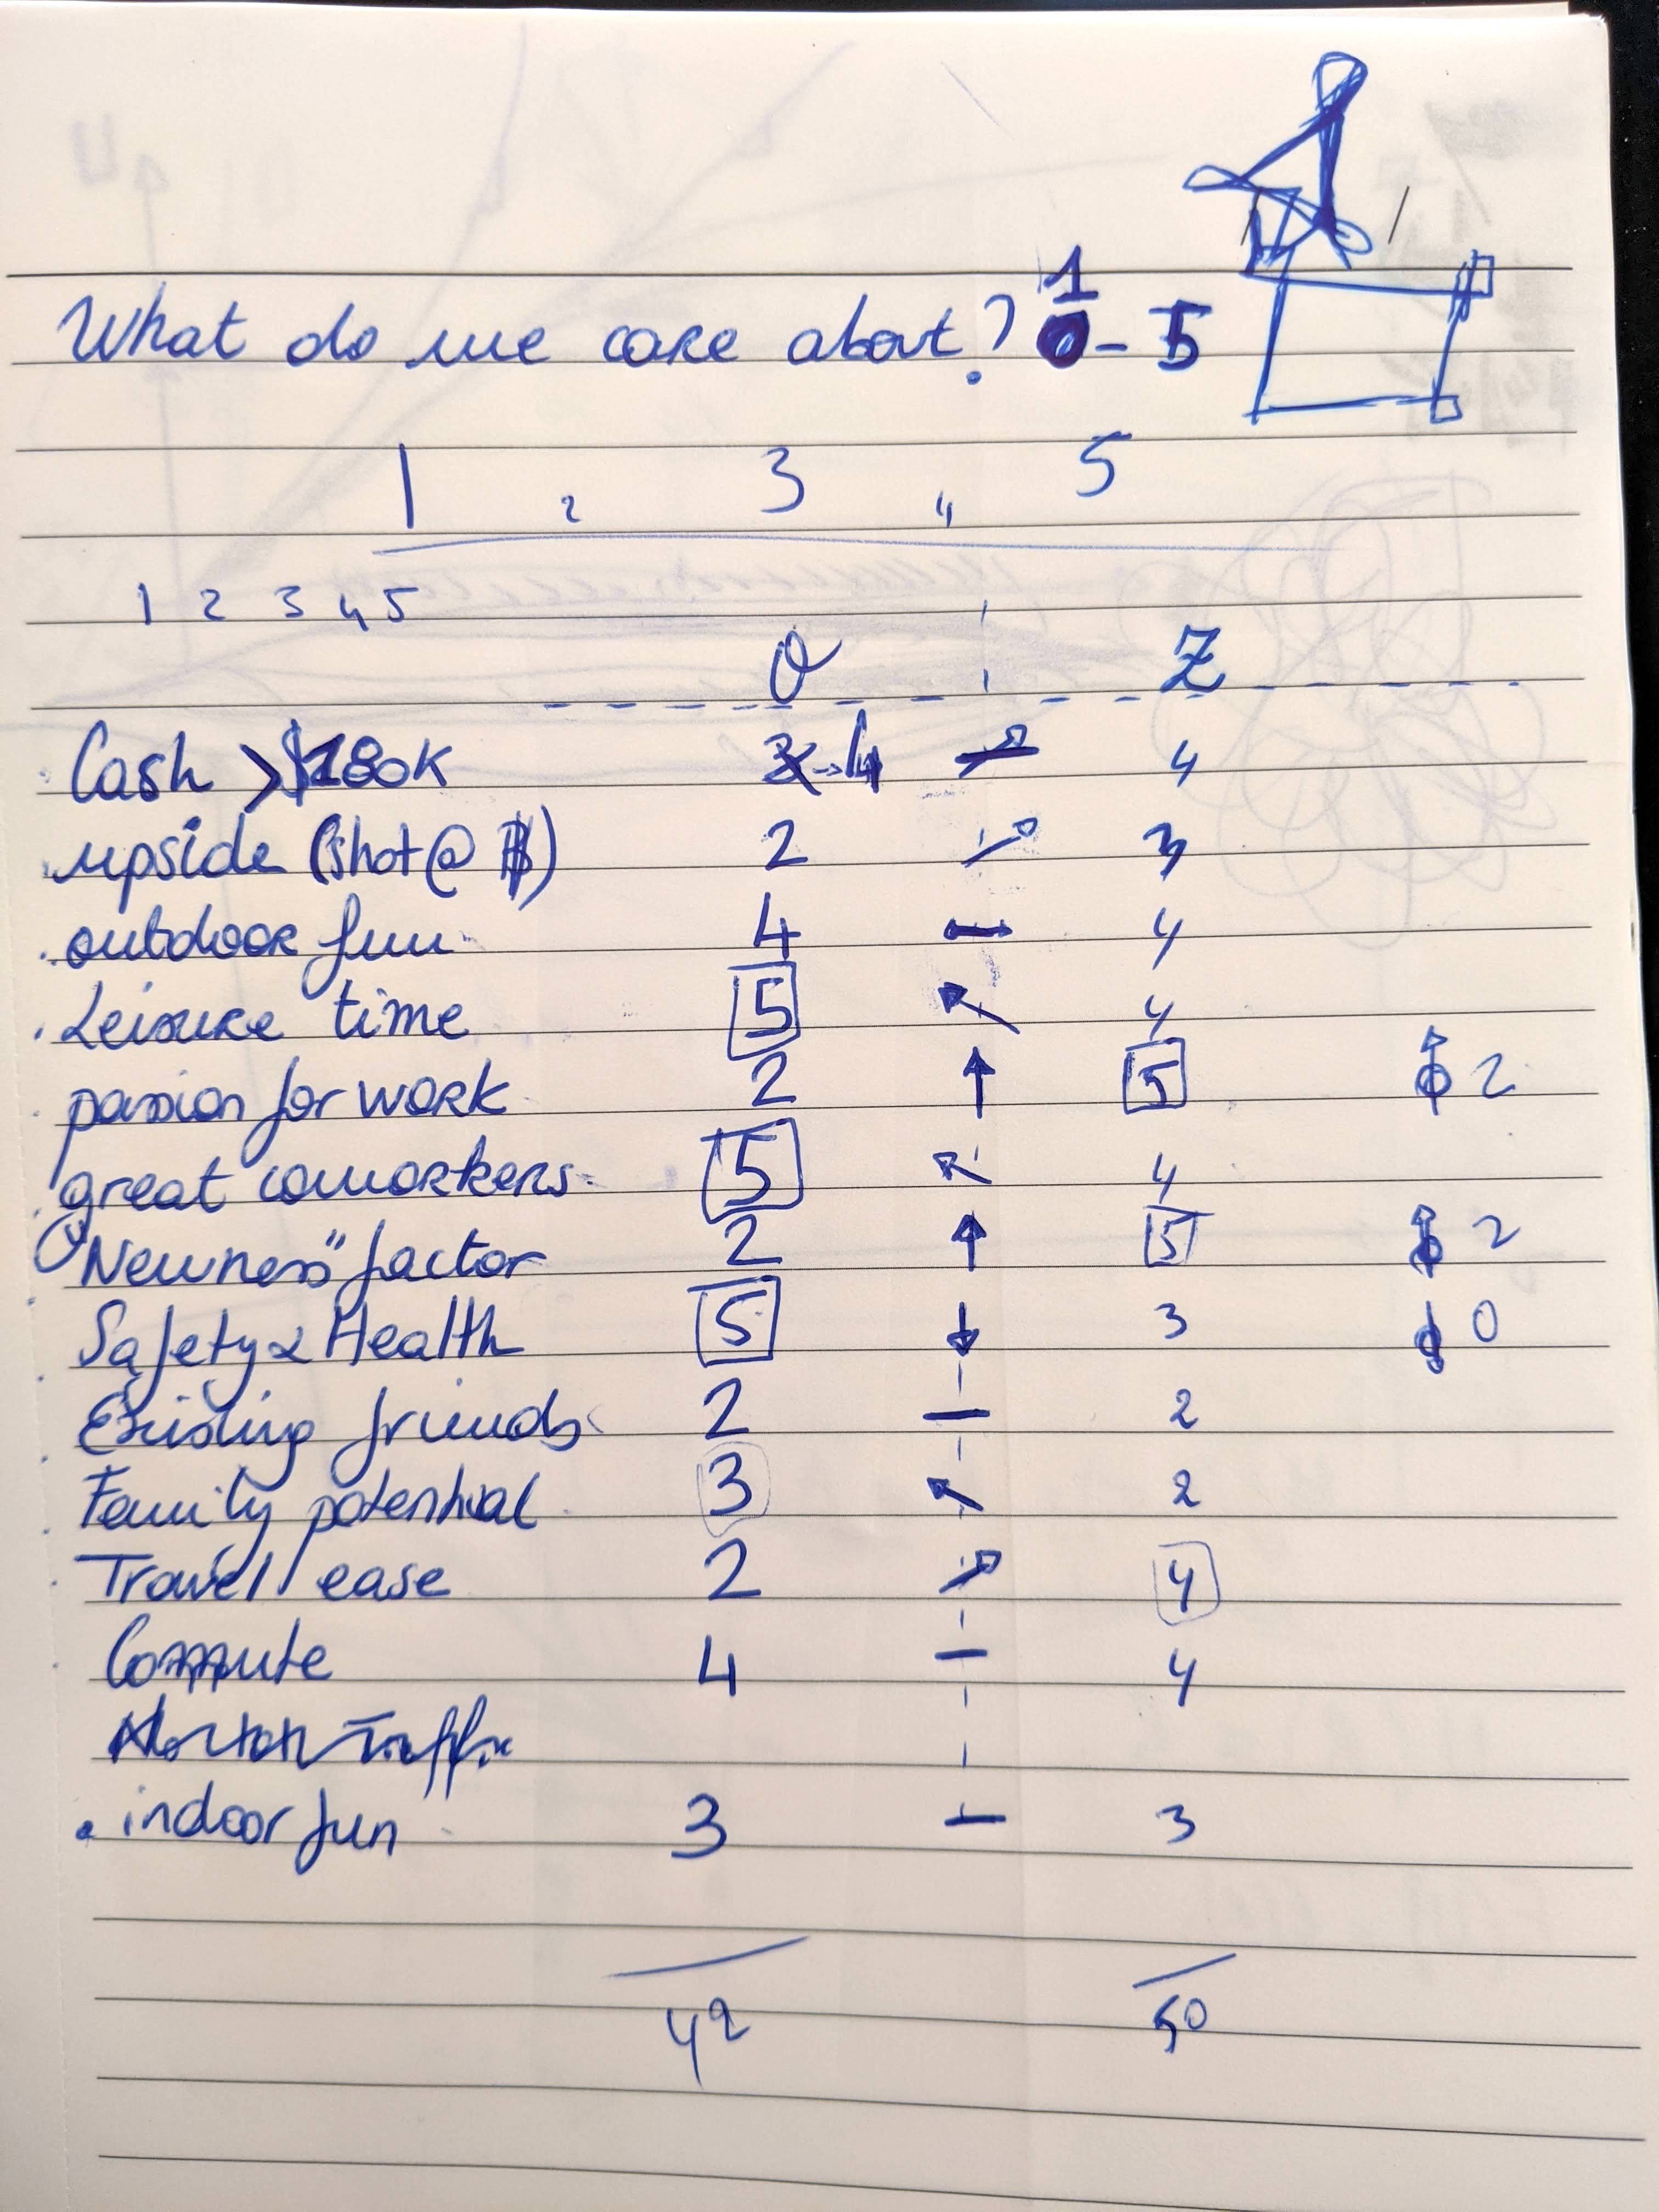 What do we care about? 1 0 - 5
1 2 3 4 5
1 2 3 4 5
O Z
Cash >$180K 3→4 4
upside (shot@ $) 2 3
outdoor fun 4 4
Leisure time 5 4
passion for work 2 5 2
great coworkers 5 4
"Newness" factor 2 5 2
Safety & Health 5 3 0
Existing friends 2 2
Family potential 3 2
Travel ease 2 4
Commute 4 4
Traffic
indoor fun 3 3
42 50